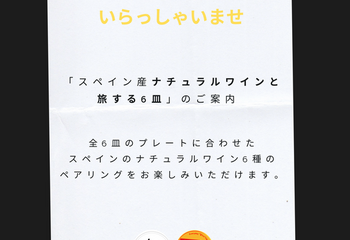 いらっしゃいませ
「スペイン産ナチュラルワインと
旅する6皿」のご案内
全6皿のプレートに合わせた
スペインのナチュラルワイン6種の
ペアリングをお楽しみいただけます。